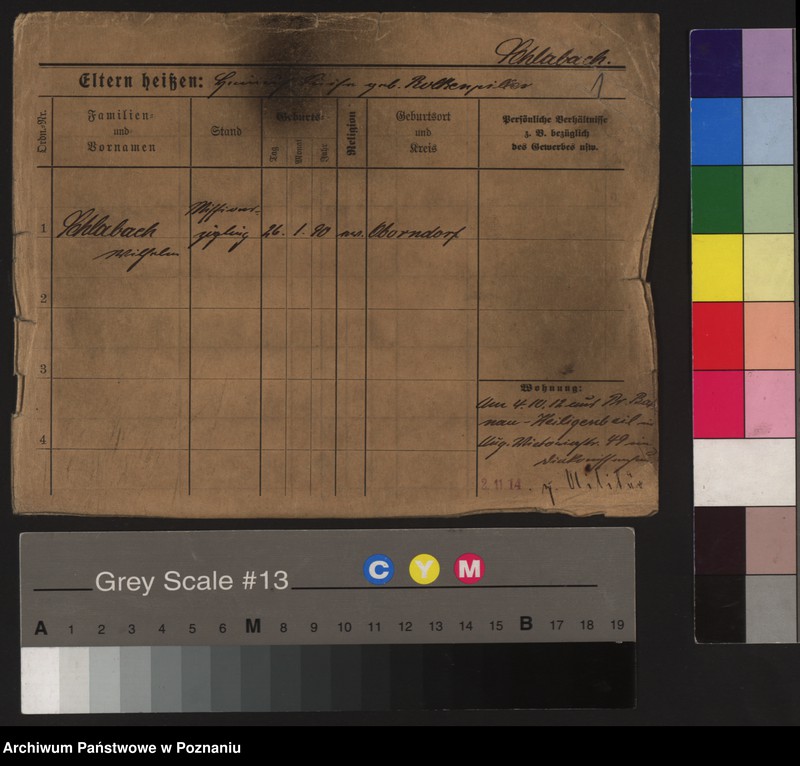 Schlabach.
Eltern heißen: Heinrich Luise geb. 1
Ordn.-Nr.
Familien- und Vornamen
Stand
Geburts-
Tag
Monat
Jahr
Religion
Geburtsort und Kreis
Persönliche Verhältnisse
z. B. bezüglich
des Gewerbes usw.
1 Schlabach Missions- 26. 1. 90 Oborndorf
Wilhelm zögling
2
3
4
Wohnung:
Am 4.10.12 aus Pr. Bar
nau - Heiligenbeil in
Aug. Victoriastr. 49 im
2 11 14. z. Militär
Grey Scale #13
C Y M
A 1 2 3 4 5 6 M 8 9 10 11 12 13 14 15 B 17 18 19
Archiwum Państwowe w Poznaniu